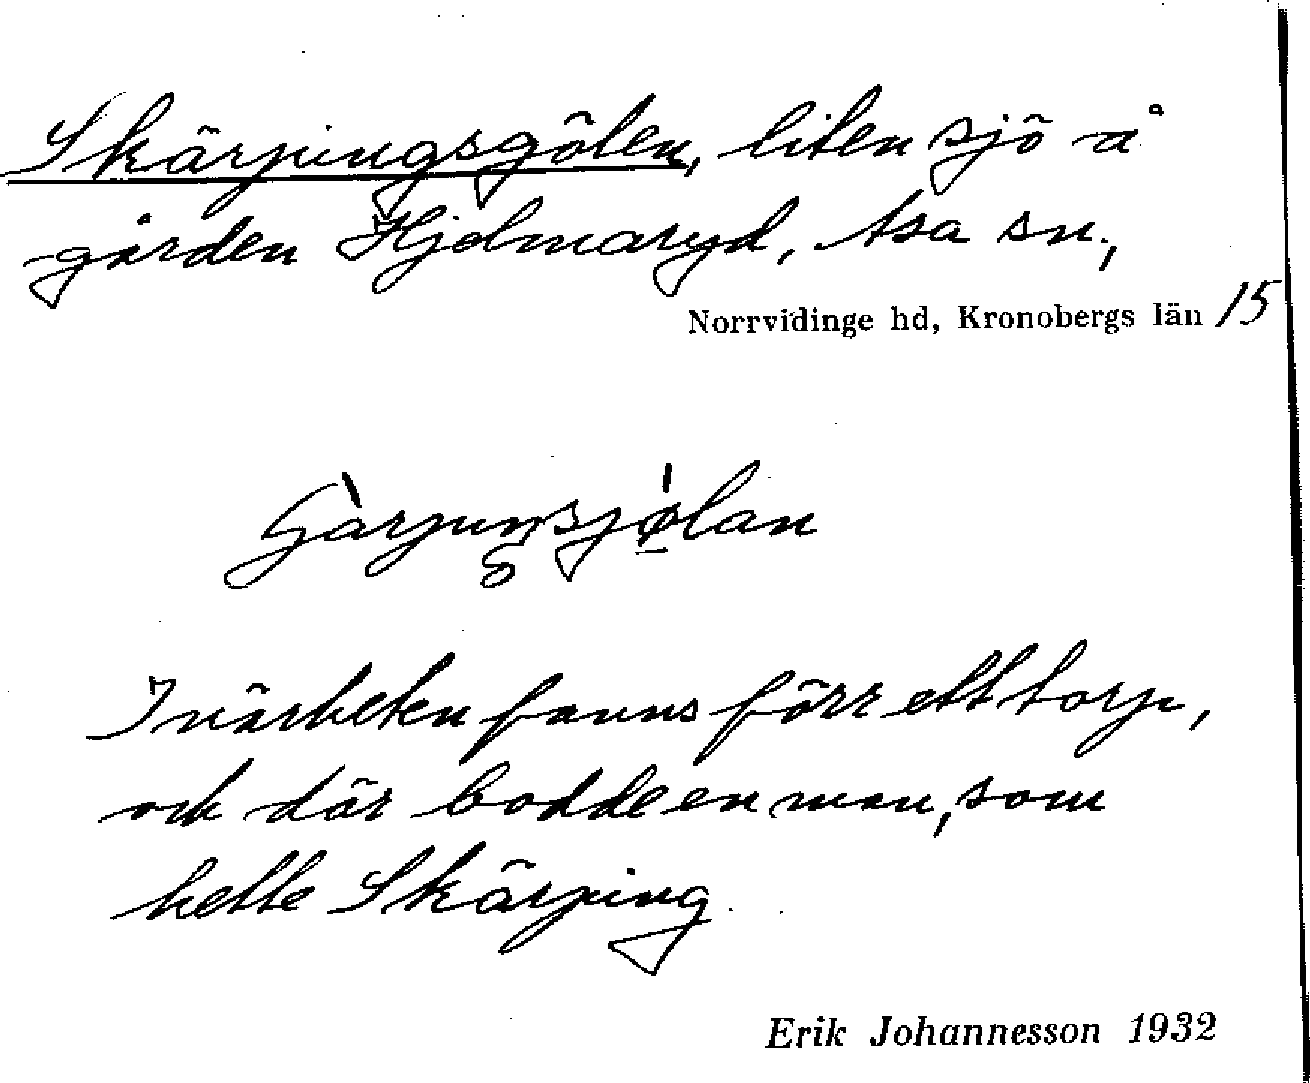 Skärpingsgölen, liten sjö å
gården Hjelmaryd, Asa sn.,
Norrvidinge hd, Kronobergs län 15
I närheten fanns förr ett torp,
och där bodde en man, som
hette Skärping.
Erik Johannesson 1932